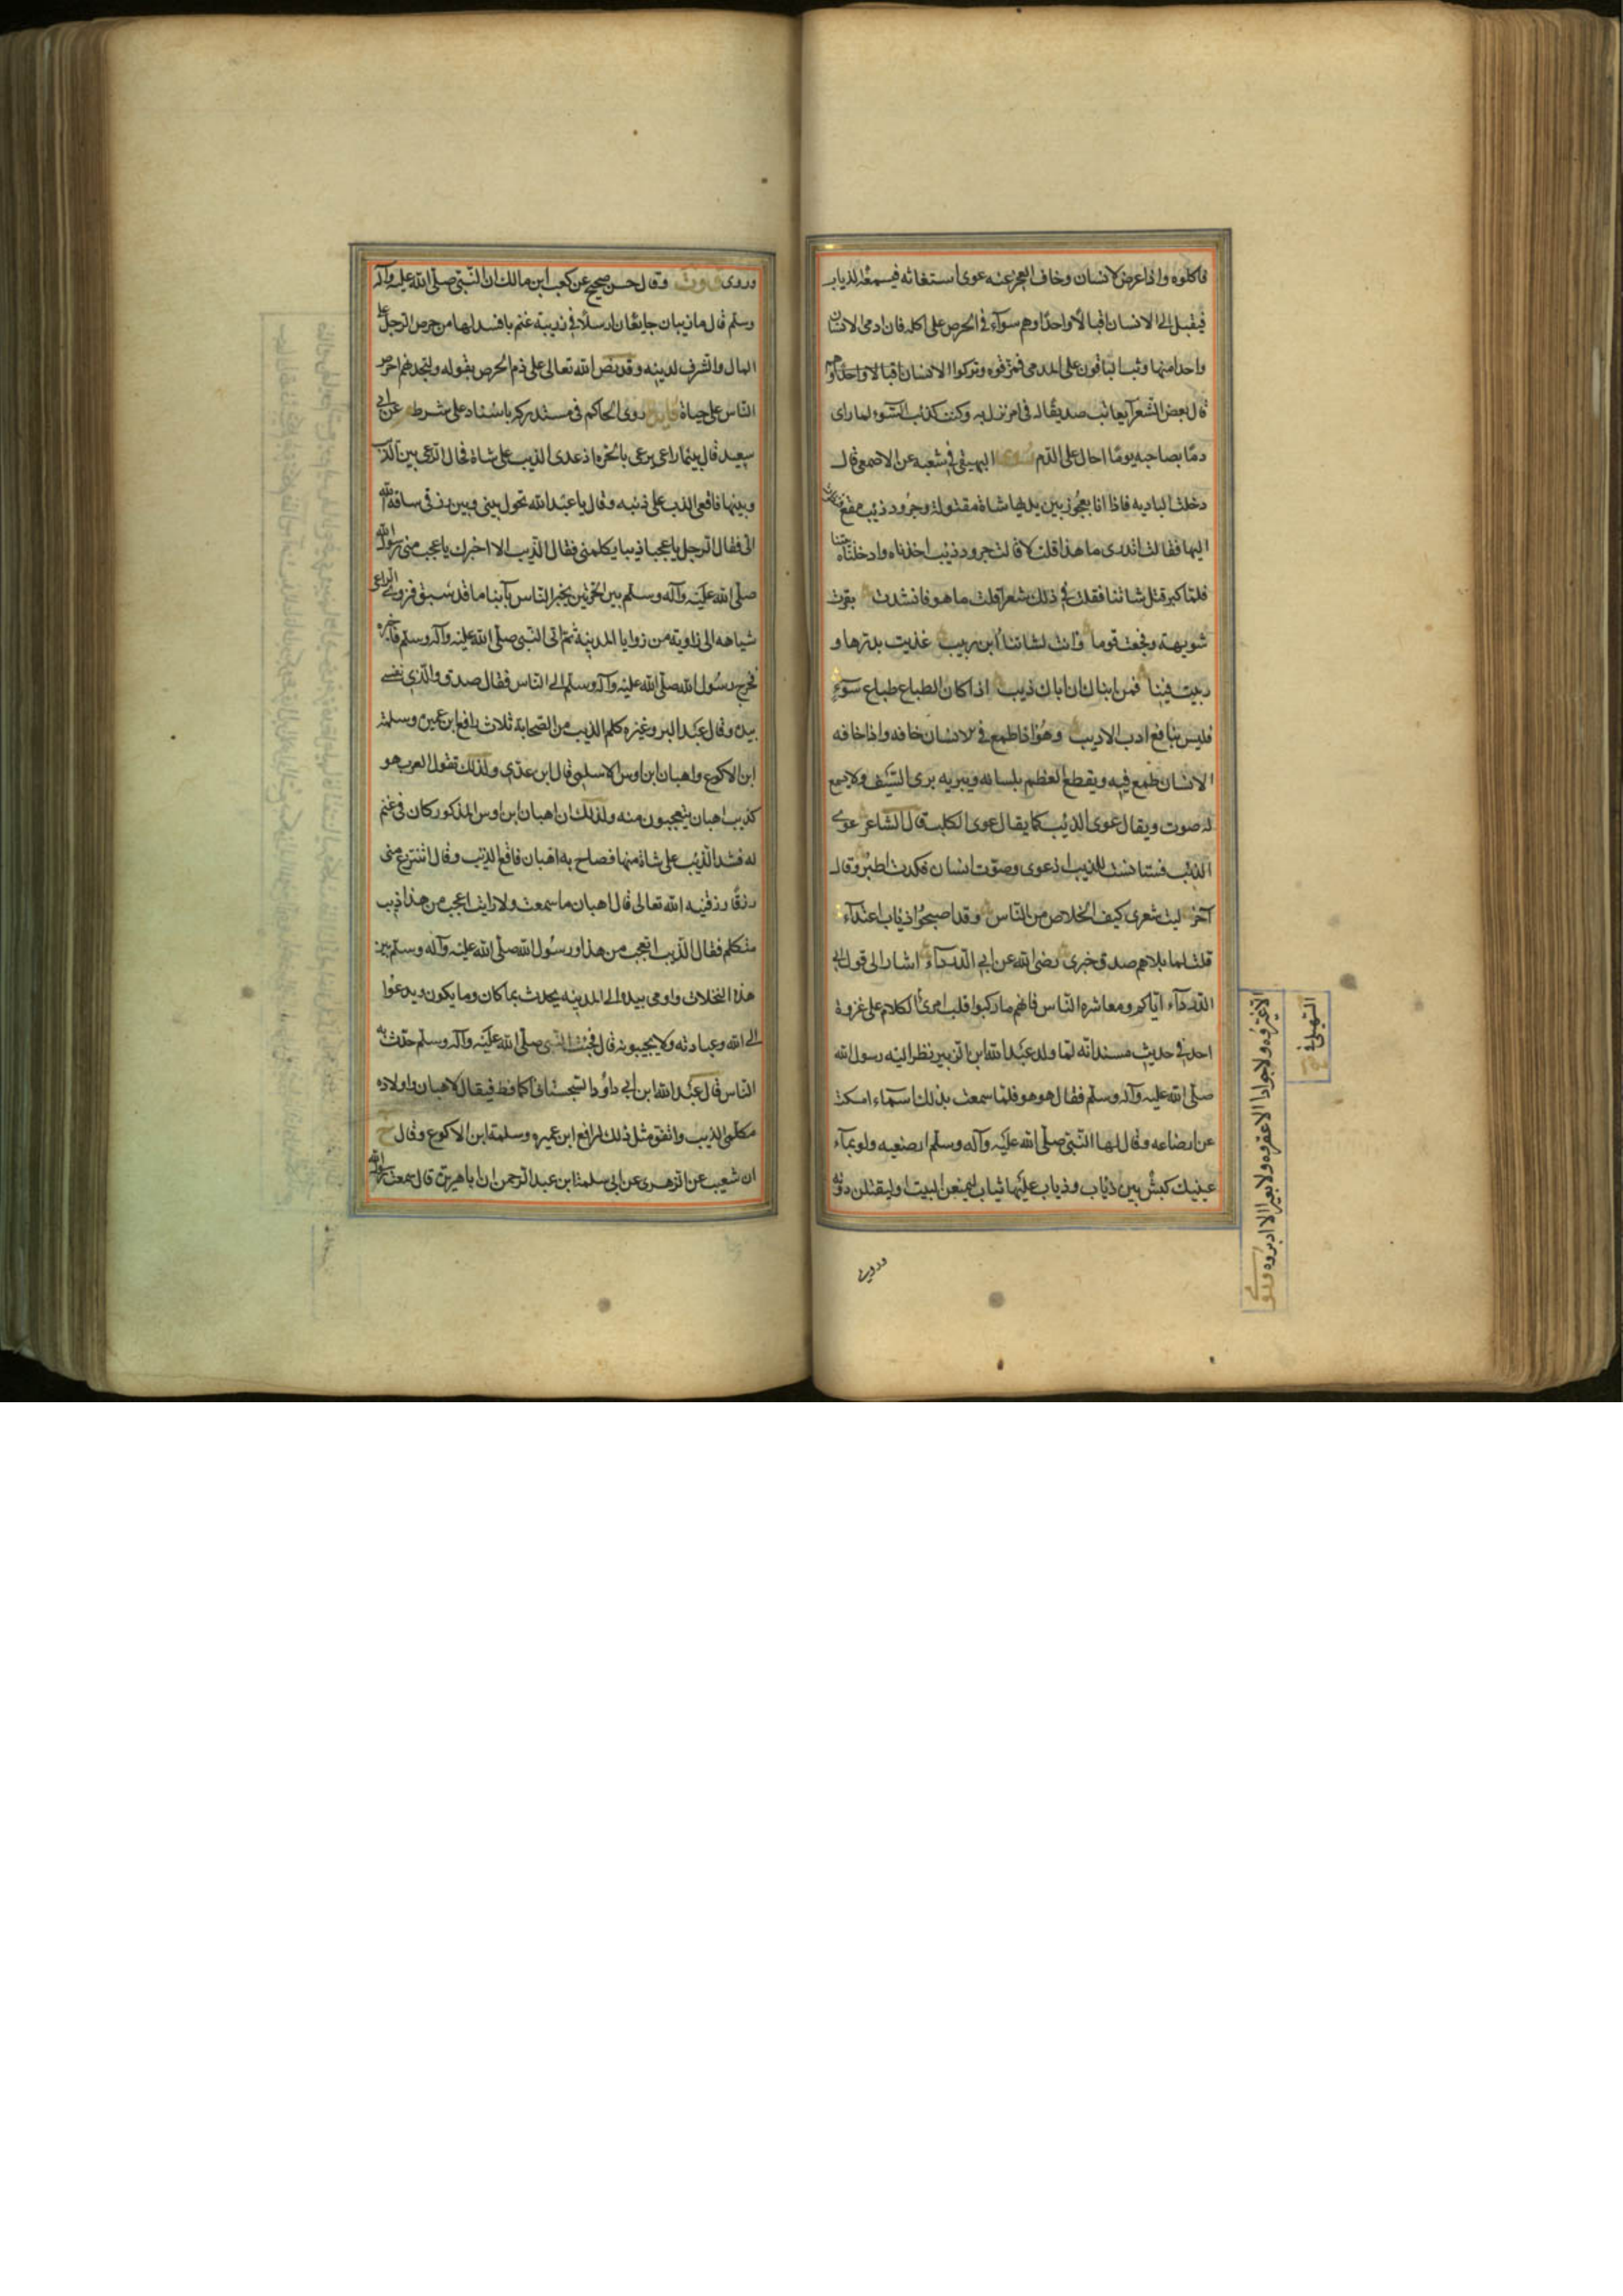 فاكلوه واذا عرض لانسان وخاف العجز عنه عوى استغاثه فيسمعه الذياب
فيقبل الى الانسان اقبالا واحدا وهم سوآء في الحرص على اكله فان ادمى الانسان
واحدا منها وثب الباقون على المدمى فمزقوه وتركوا الانسان
قال بعض الشعرآ يعاتب صديقا له في امر نزل به وكنت كذئب السوء لما راى
دما بصاحبه يوما احال على الدم روى البيهقي في شعبه عن الاصمعي قال
دخلت البادية فاذا انا بعجوز بين يديها شاة مقتولة وجرود ذئب مقع
اليها فقالت اتدرى ما هذا قلت لا قالت جرود ذئب اخذناه وادخلناه بيتنا
فلما كبر قتل شاتنا فقلت في ذلك شعرا قلت ما هو فانشدت بقرت
شويهة وفجعت قوما وانت لشاتنا ابن ربيب غذيت بدرها و
ربيت فينا فمن انباك ان اباك ذيب اذا كان الطباع طباع سوء
فليس بنافع ادب الاديب وهو اذا طمع في الانسان خافه واذا خافه
الانسان طمع فيه ويقطع العظم بلسانه ويبريه برى السيف ولا يسمع
له صوت ويقال عوى الذئب كما يقال عوى الكلب قال الشاعر عوى
الذئب فاستانست للذيب اذ عوى وصوت انسان فكدت اطير وقال
آخر ليت شعرى كيف الخلاص من الناس وقد اصبحوا ذياب اعتدآء
قلت لما بلاهم صدق خبرى رضى الله عن ابي الدردآء اشار الى قول ابي
الدردآء اياكم ومعاشره الناس فانهم ما ركبوا قلب امرئ الكلام على غزوة
احد في حديث مسند انه لما ولد عبد الله ابن الزبير نظر اليه رسول الله
صلى الله عليه وآله وسلم فقال هو هو فلما سمعت بذلك اسمآء امسكت
عن ارضاعه وقال لها النبي صلى الله عليه وآله وسلم ارضعيه ولو بمآء
عينيك كبش بين ذئاب وذياب عليها ثياب ليمنعن البيت او ليقتلن دونه
الا غروه ولا جوادا الا عقروه ولا بعيرا الا ادبروه وفى
السهيلي في
وروى
وروى وقال حسن صحيح عن كعب ابن مالك ان النبي صلى الله عليه وآله
وسلم قال ما ذيبان جايعان ارسلا في زريبة غنم بافسد لها من حرص الرجل على
المال والشرف لدينه وقد نص الله تعالى على ذم الحرص بقوله ولتجدنهم احرص
الناس على حياة روى الحاكم في مستدركه باسناد على شرط عن ابي
سعيد قال بينما راعى يرعى بالحره اذ عدى الذيب على شاة فحال الراعى بين الذيب
وبينها فاقعى الذيب على ذنبه وقال يا عبد الله تحول بيني وبين رزق ساقه الله
الى فقال الرجل يا عجبا ذيبا يكلمني فقال الذيب الا اخبرك باعجب مني رسول الله
صلى الله عليه وآله وسلم بين الحرتين يخبر الناس بآنبا ما قد سبق فزوى الراعى
شياهه الى زاوية من زوايا المدينة ثم اتى النبي صلى الله عليه وآله وسلم فاخبره
فخرج رسول الله صلى الله عليه وآله وسلم الى الناس فقال صدق والذي نفسي
بيده وقال عبد البر وغيره كلم الذيب من الصحابة ثلاث رافع ابن عميره وسلمة
ابن الاكوع واهبان ابن اوس الاسلمي قال ابن عدى ولذلك تقول العرب هو
كذيب اهبان يتعجبون منه ولذلك ان اهبان ابن اوس المذكور كان في غنم
له فشد الذئب على شاة منها فصاح به اهبان فاقع الذئب وقال اتنتزع مني
رزقا رزقنيه الله تعالى قال اهبان ما سمعت ولا رايت اعجب من هذا ذيب
متكلم فقال الذيب اتعجب من هذا ورسول الله صلى الله عليه وآله وسلم بين
هذه النخلات واومى بيده الى المدينه يحدث بما كان وما يكون ويدعوا
الى الله وعبادته ولا يجيبونه قال فجئت النبي صلى الله عليه وآله وسلم حدث به
الناس قال عبد الله ابن ابي داود السجستاني الحافظ فيقال لاهبان واولاده
مكلمى الذيب واتفق مثل ذلك لرافع ابن عميره وسلمة ابن الاكوع وقال خ
ان شعيب عن الزهرى عن ابي سلمة ابن عبد الرحمن ان ابا هريرة قال سمعت رسول الله